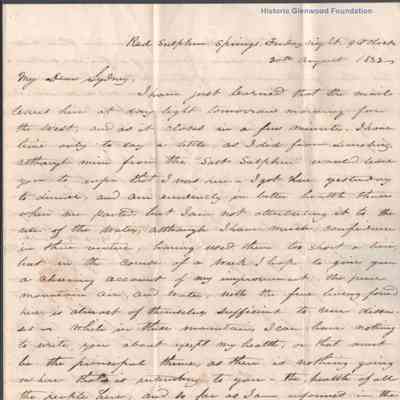 Historic Glenwood Foundation
Red Sulphur Springs, Friday night, 9 O'clock
30th August 1833
My Dear Sydney,
I have just learned that the mail
leaves here at day light tomorrow morning for
the West, and as it closes in a few minutes, I have
time only to say a little as I did from
although mine from the Salt Sulphur would lead
you to
that I was
I got here yesterday
to dinner, and am evidently in better health than
when we parted, but I am not attributing it to the
use of the Water, although I have much confidence
in their virtue having used them too short a time,
but in the course of a week I hope to give you
a cheering account of my improvement. the pure
mountain air, and water, with the fine living found
here is almost of themselves sufficient to cure
While in these mountains I can have nothing
to write you about except my health, so that must
be the principal theme, as there is nothing going
on here that is interesting to you - the health of all
the people here, and so far as I am informed in the